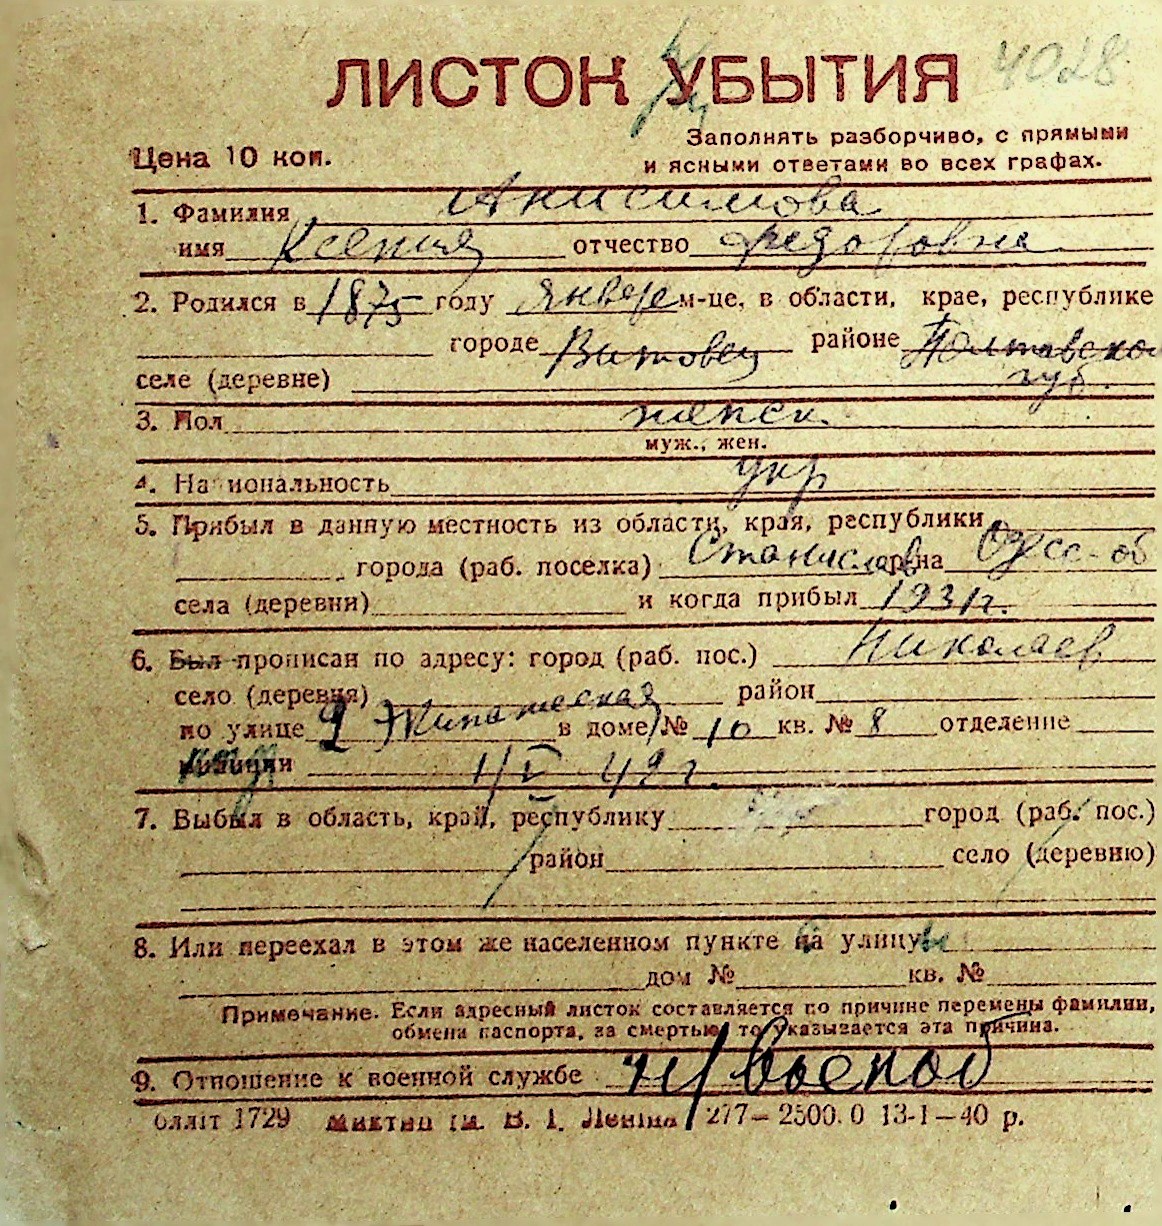 ЛИСТОК УБЫТИЯ 4028
Заполнять разборчиво, с прямыми
Цена 10 коп. и ясными ответами во всех графах.
1. Фамилия Анисимова
имя Ксения отчество Федоровна
2. Родился в 1875 году Январе м-це, в области, крае, республике
городе Витовец районе Полтавской
селе (деревне) губ.
3. Пол женск.
муж., жен.
4. Национальность укр
5. Прибыл в данную местность из области, края, республики
города (раб. поселка) Станислав р-на Одесс-об
села (деревни) и когда прибыл 1931г.
6. Был прописан по адресу: город (раб. пос.) Николаев
село (деревня) район
по улице 2 Экипажеская в доме № 10 кв. № 8 отделение
милиции 1/V 49 г.
7. Выбыл в область, край, республику город (раб. пос.)
район село (деревню)
8. Или переехал в этом же населенном пункте на улицу
дом № кв. №
Примечание. Если адресный листок составляется по причине перемены фамилии,
обмена паспорта, за смертью, то указывается эта причина.
9. Отношение к военной службе н/военоб
1729 ім. В. І. Леніна 277—2500.0 13-1—40 р.